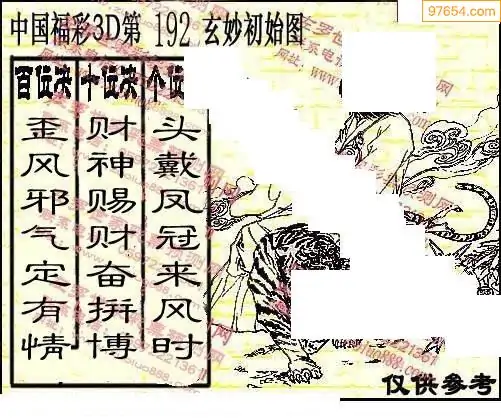 97654.com
中国福彩3D第 192 玄妙初始图
百位决
十位决
个位
歪风邪气定有情
财神赐财奋拼博
头戴凤冠来风时
仅供参考